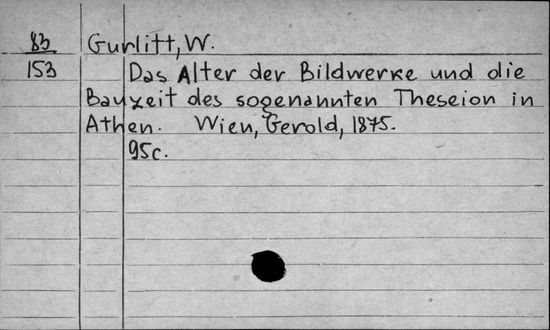 83 Gurlitt, W.
153 Das Alter der Bildwerke und die
Bauzeit des sogenannten Theseion in
Athen. Wien, Gerold, 1875.
95c.